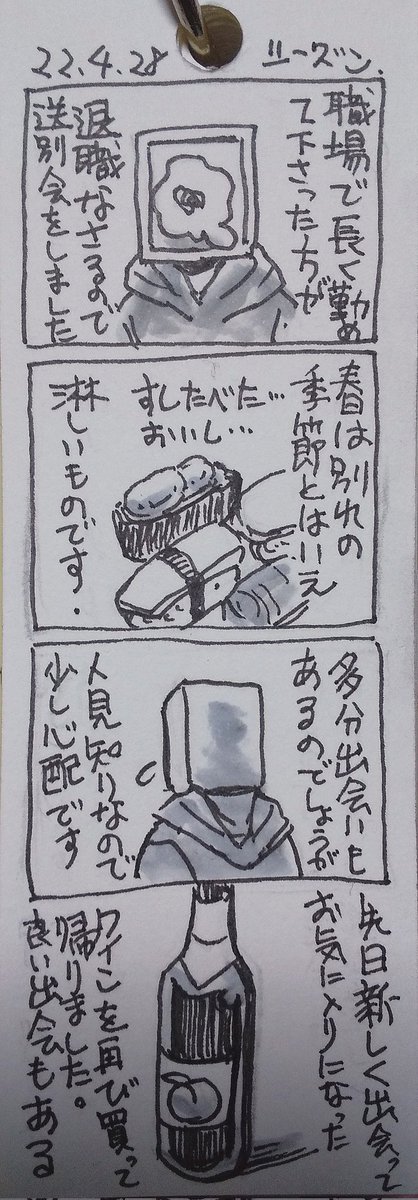 22.4.28
シーズン.
職場で長く勤め
て下さった方が
退職なさるので
送別会をしました
春は別れの
季節とはいえ
すしたべた…
おいし…
淋しいものです.
多分出会いも
あるのでしょうが
人見知りなので
少し心配です
先日新しく出会って
お気に入りになった
ワインを再び買って
帰りました。
良い出会もある